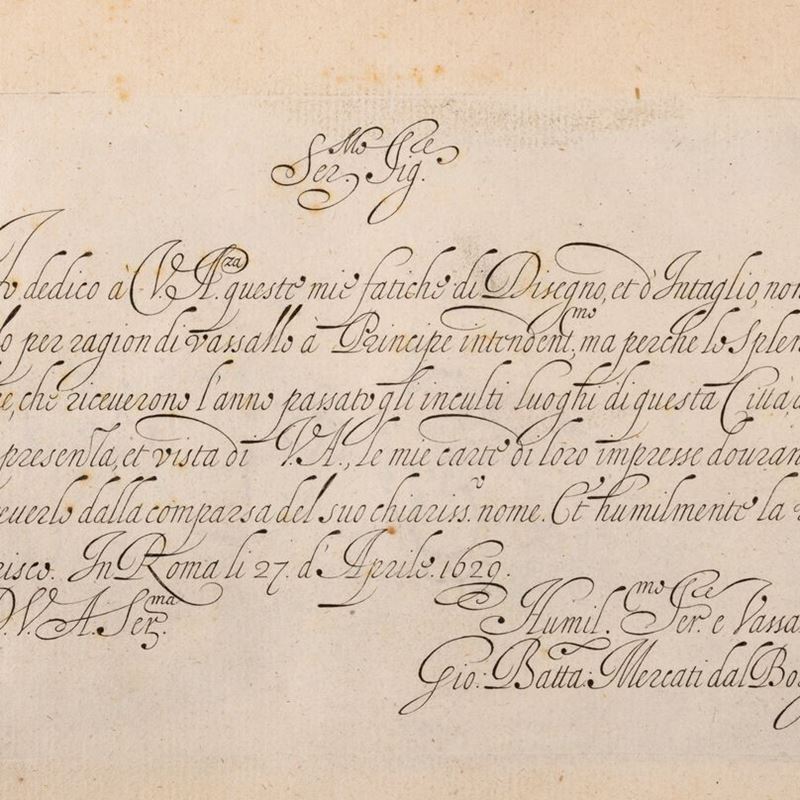 Ser.mo Sig.re
Io dedico à V. A.za queste mie fatiche di Disegno, et d'Intaglio, non
lo per ragion di vassallo à Principe intendent.mo ma perche lo Splen
re, che riceuerono l'anno passato gli inculti luoghi di questa Città d
presenza, et vista di V.A., le mie carte di loro impresse douran
ceuerlo dalla comparsa del suo chiariss.o nome. Et humilmente la r
risco. In Roma li 27. d'Aprile. 1629.
D.V.A. Ser.ma
Humil.mo Ser.re e Vassa
Gio: Batta: Mercati dal Bo